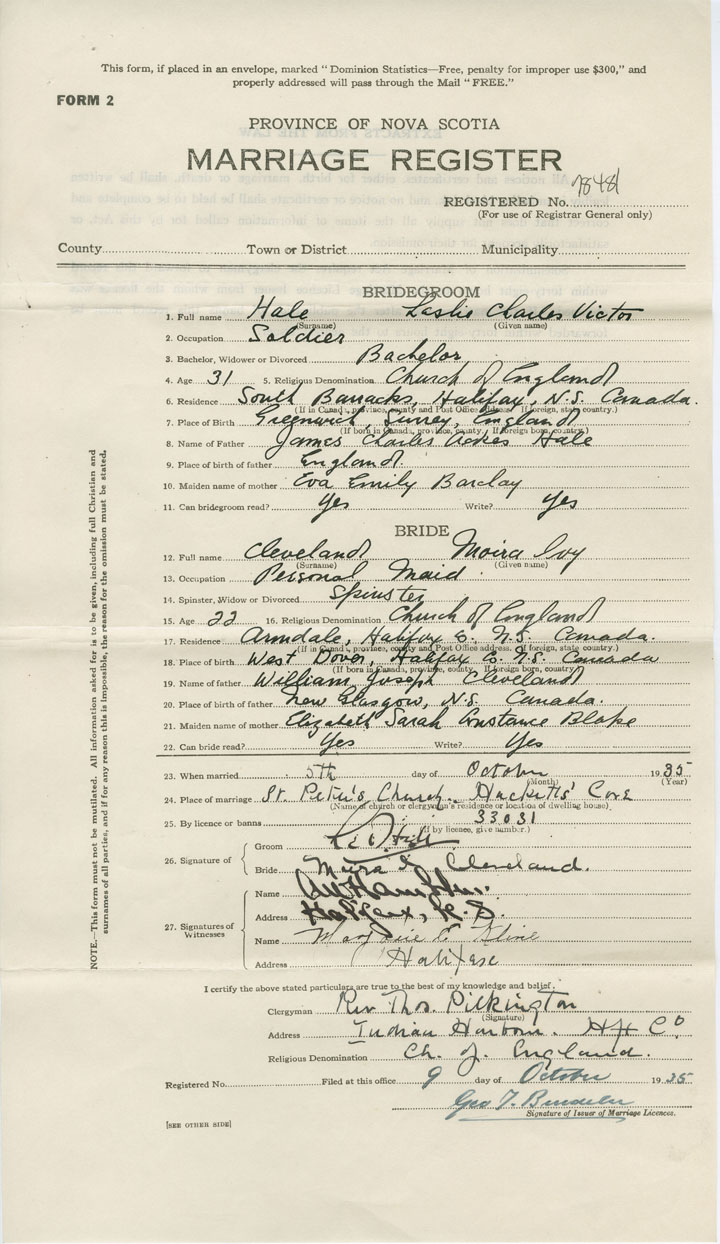 This form, if placed in an envelope, marked "Dominion Statistics—Free, penalty for improper use $300," and
properly addressed will pass through the Mail "FREE."
FORM 2
PROVINCE OF NOVA SCOTIA
MARRIAGE REGISTER
REGISTERED No.
(For use of Registrar General only)
County Town or District Municipality
BRIDEGROOM
1. Full name Hale Leslie Charles Victor
(Surname) (Given name)
2. Occupation Soldier
3. Bachelor, Widower or Divorced Bachelor
4. Age 31 5. Religious Denomination Church of England
6. Residence South Barracks, Halifax, N.S. Canada.
(If in Canada, province, county and Post Office address. If foreign, state country.)
7. Place of Birth Greenwich, Surrey, England
(If born in Canada, province, county. If foreign born, country.)
8. Name of Father James Charles Hale
9. Place of birth of father England.
10. Maiden name of mother Eva Emily Barclay
11. Can bridegroom read? Yes Write? Yes
BRIDE
12. Full name Cleveland Moira Ivy
(Surname) (Given name)
13. Occupation Personal Maid
14. Spinster, Widow or Divorced Spinster
15. Age 22 16. Religious Denomination Church of England
17. Residence Armdale, Halifax Co. N.S. Canada.
(If in Canada, province, county and Post Office address. If foreign, state country.)
18. Place of birth West Dover, Halifax Co. N.S. Canada
(If born in Canada, province, county. If foreign born, country.)
19. Name of father William Joseph Cleveland
20. Place of birth of father New Glasgow, N.S. Canada.
21. Maiden name of mother Elizabeth Sarah Constance Blake
22. Can bride read? Yes Write? Yes
23. When married 5th day of October 1935
(Month) (Year)
24. Place of marriage St. Peter's Church. Hacketts' Cove
(Name of church or clergyman's residence or location of dwelling house)
25. By licence or banns 33031
(If by licence, give number.)
26. Signature of
Groom
Bride Cleveland.
27. Signatures of Witnesses
Name
Address Halifax, N.S.
Name Marjorie E. Kline
Address Halifax
I certify the above stated particulars are true to the best of my knowledge and belief.
Clergyman Rev Thos Pilkington
(Signature)
Address Indian Harbour. Hfx Co
Religious Denomination Ch. of England.
Registered No. Filed at this office 9 day of October 1935
Geo T.
Signature of Issuer of Marriage Licences.
[SEE OTHER SIDE]
NOTE.—This form must not be mutilated. All information asked for is to be given, including full Christian and
surnames of all parties, and if for any reason this is impossible, the reason for the omission must be stated.